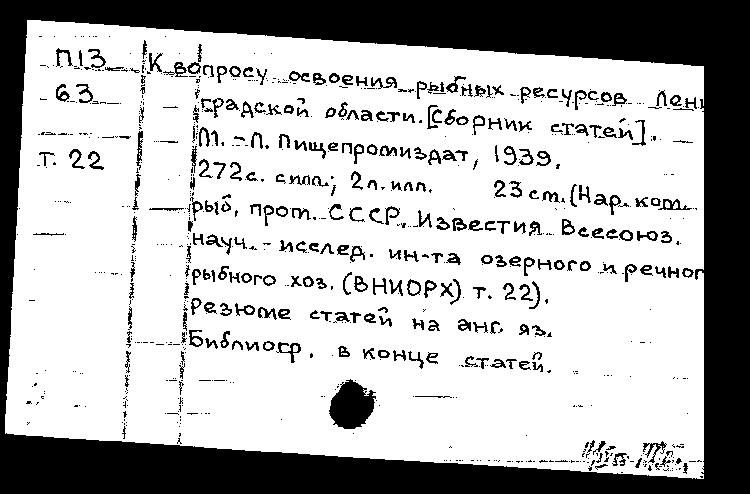 П13 К вопросу освоения рыбных ресурсов Лени
63 градской области. [Сборник статей].
М.-Л. Пищепромиздат, 1939.
т. 22 272с. с илл.; 2л. илл. 23 cm. (Нар. ком.
рыб. пром. СССР. Известия Всесоюз.
науч.-исслед. ин-та озерного и речног
рыбного хоз. (ВНИОРХ) т. 22).
Резюме статей на анг. яз.
Библиогр. в конце статей.